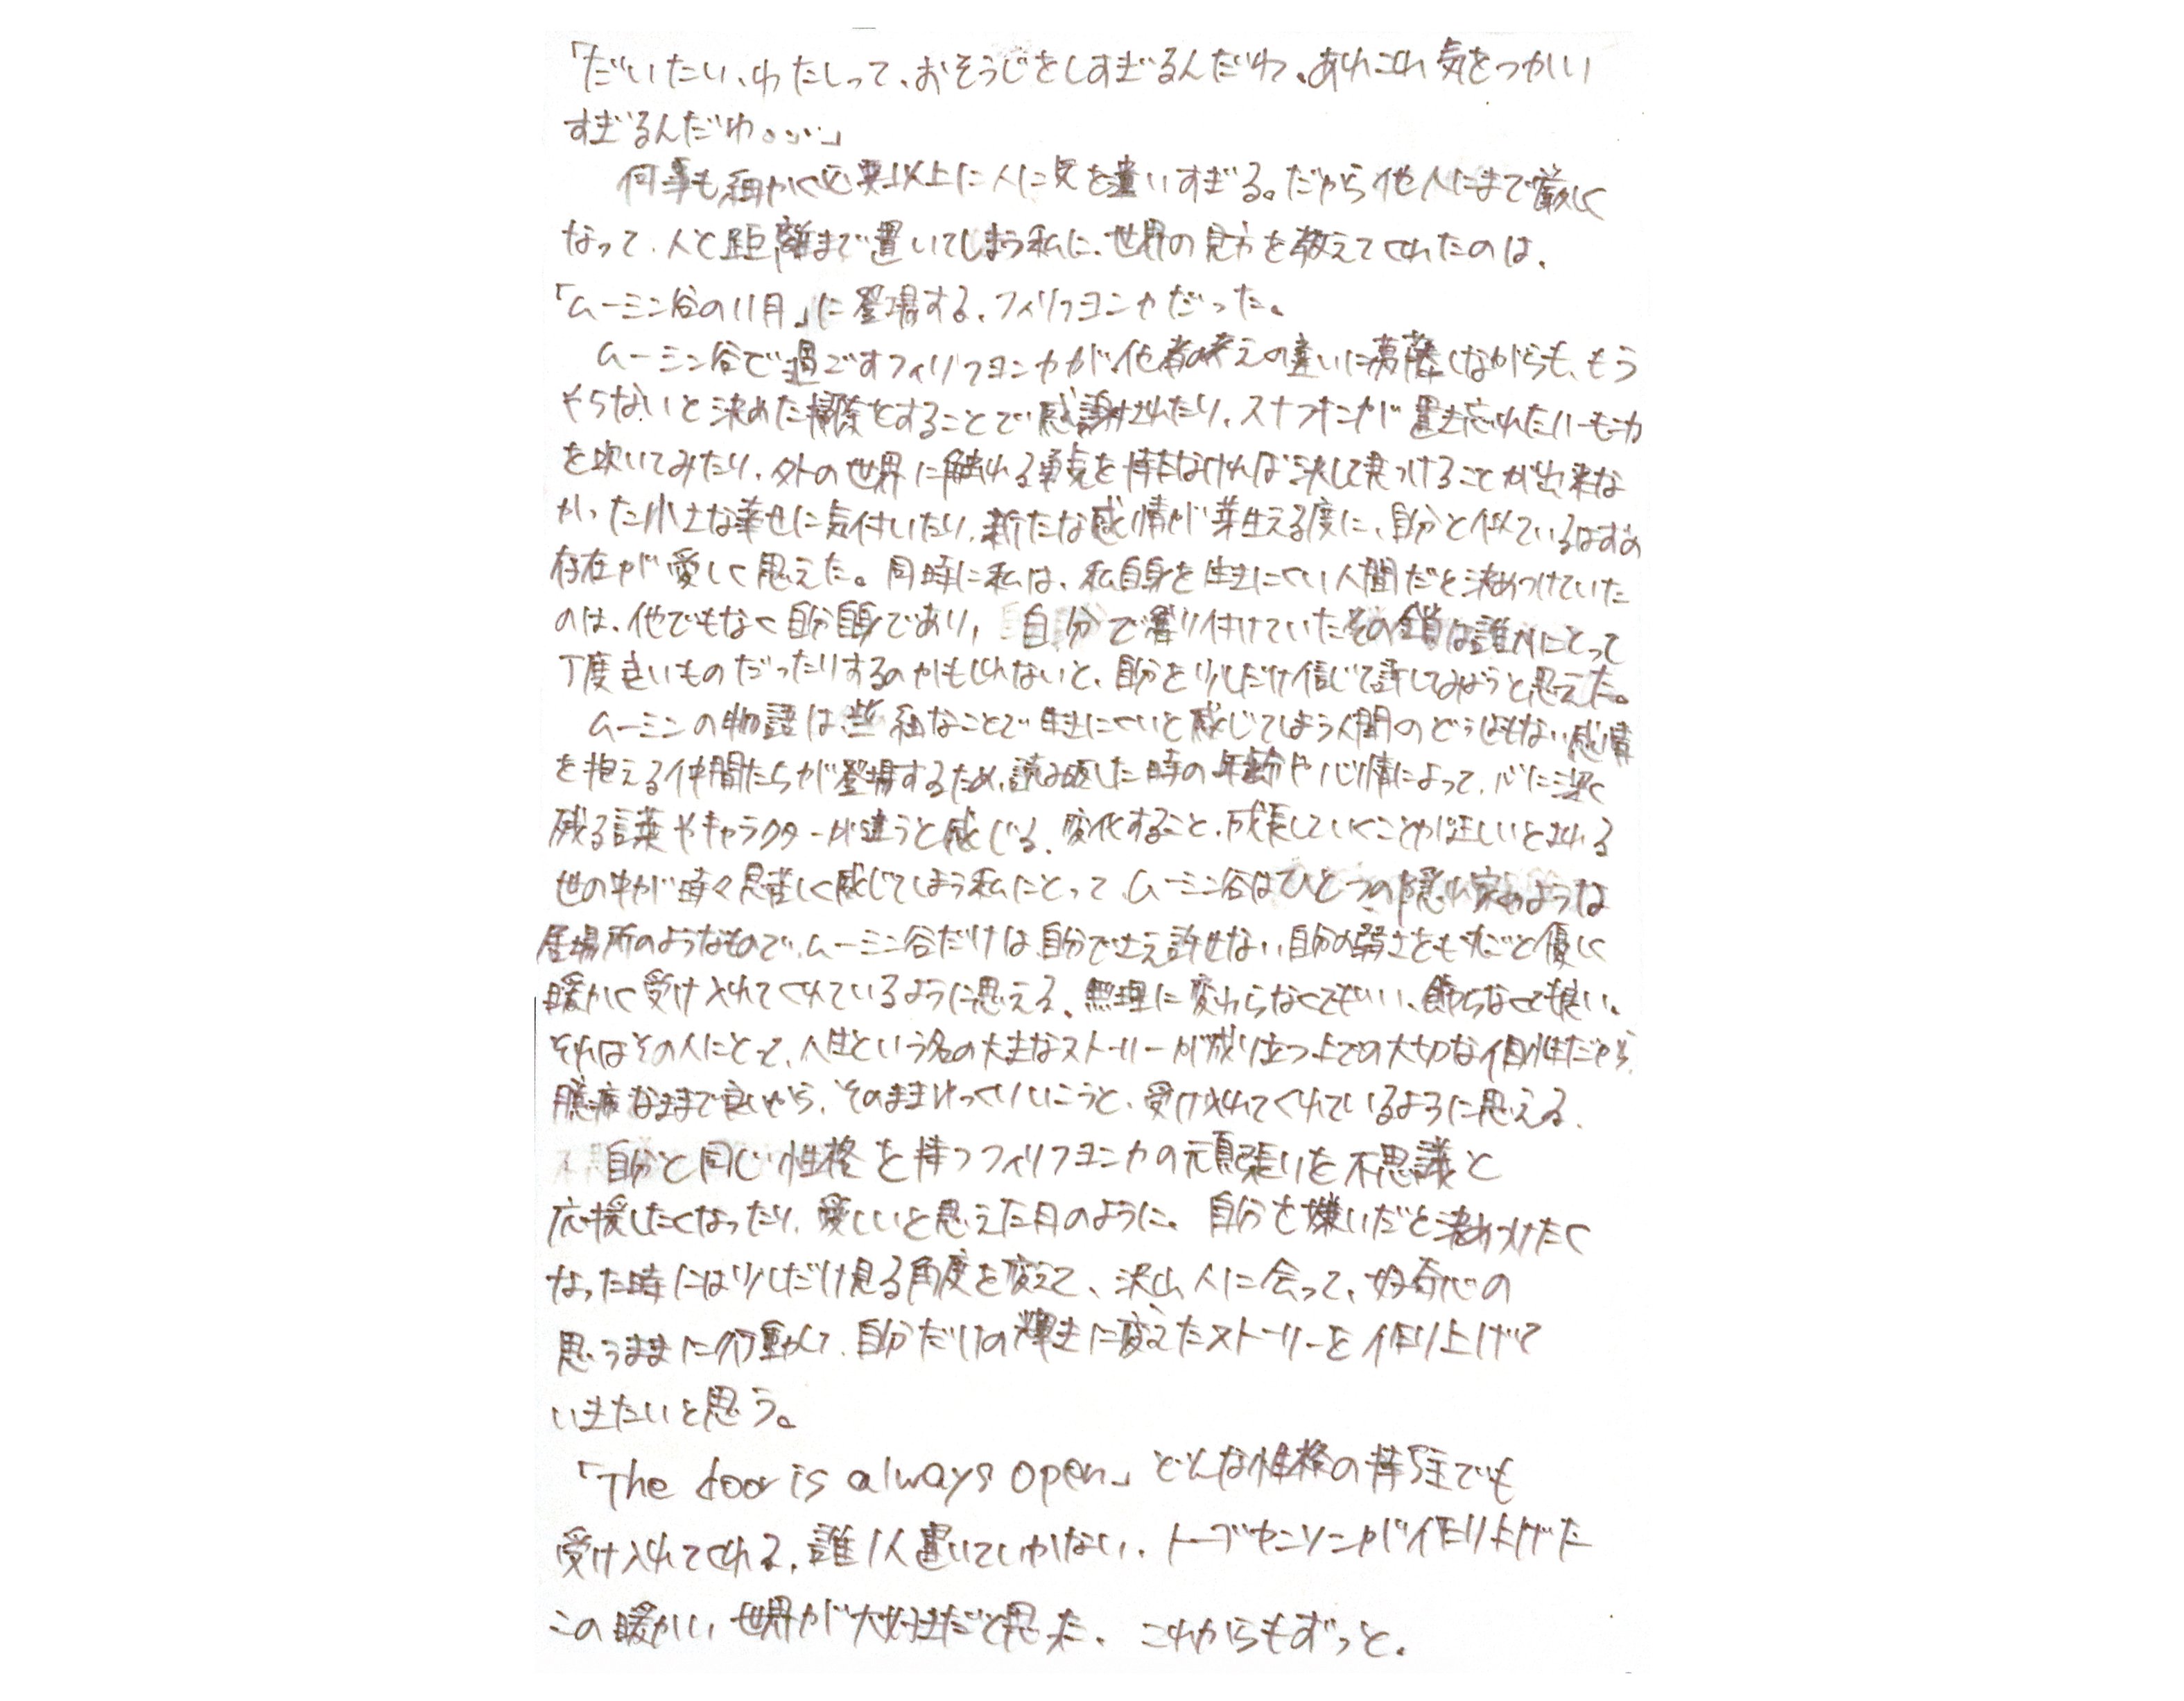 「だいたい、わたしって、おそうじをしすぎるんだわ。あれこれ気をつかい
すぎるんだわ。…」
何事も細かく必要以上に人に気を遣いすぎる。だから他人にまで厳しく
なって、人と距離まで置いてしまう私に、世界の見方を教えてくれたのは、
「ムーミン谷の11月」に登場する、フィリフヨンカだった。
ムーミン谷で過ごすフィリフヨンカが、他者の考えの違いに葛藤しながらも、もう
そらないと決めた掃除をすることで感謝されたり、スナフキンが置き忘れたハーモニカ
を吹いてみたり、外の世界に触れる勇気を持たなければ決して見つけることが出来な
かった小さな幸せに気付いたり、新たな感情が芽生える度に、自分と似ているはずの
存在が愛しく思えた。同時に私は、私自身を生きにくい人間だと決めつけていた
のは、他でもなく自分自身であり、自分で縛り付けていたその鎖は誰かにとって
丁度良いものだったりするのかもしれないと、自分を少しだけ信じて許してみようと思えた。
ムーミンの物語は些細なことで生きにくいと感じてしまう人間のどうしようもない感情
を抱える仲間たちが登場するため、読み返した時の年齢や心情によって、心に深く
残る言葉やキャラクターが違うと感じる。変化すること、成長していくことが正しいとされる
世の中が時々息苦しく感じてしまう私にとって、ムーミン谷はひとつの隠れ家のような
居場所のようなもので、ムーミン谷だけは、自分でさえ許せない、自分の弱さをも丸ごと優しく
暖かく受け入れてくれているように思える。無理に変わらなくてもいい、飾らなくても良い。
それはその人にとって、人生という名の大きなストーリーが成り立つ上での大切な個性だから、
臆病なままで良いから、そのままゆっくりいこうと、受け入れてくれているように思える。
自分と同じ性格を持つフィリフヨンカの頑張りを不思議と
応援したくなったり、愛しいと思えた月のように。自分を嫌いだと決めつけたく
なった時には少しだけ見る角度を変えて、沢山人に会って、好奇心の
思うままに行動して、自分だけの輝きに変えたストーリーを作り上げて
いきたいと思う。
「The door is always open」どんな性格の持ち主でも
受け入れてくれる、誰1人置いていかない、トーベヤンソンが作り上げた
この暖かい世界が大好きだと思った、これからもずっと。